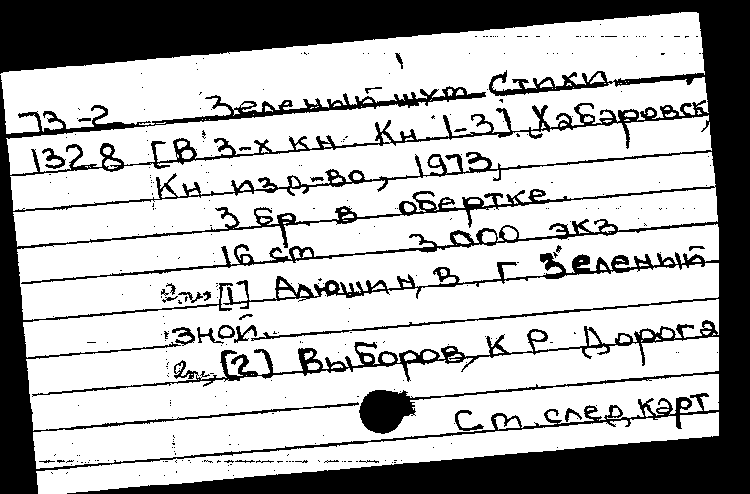 73-2 Зеленый шум Стихи
1328 [В 3-х кн. Кн. 1-3]. Хабаровск,
Кн. изд-во, 1973,
3 бр. в обертке.
16 см 3.000 экз.
[1] Алюшин, В. Г. Зеленый
зной.
[2] Выборов, К. Р. Дорога
См. след. карт